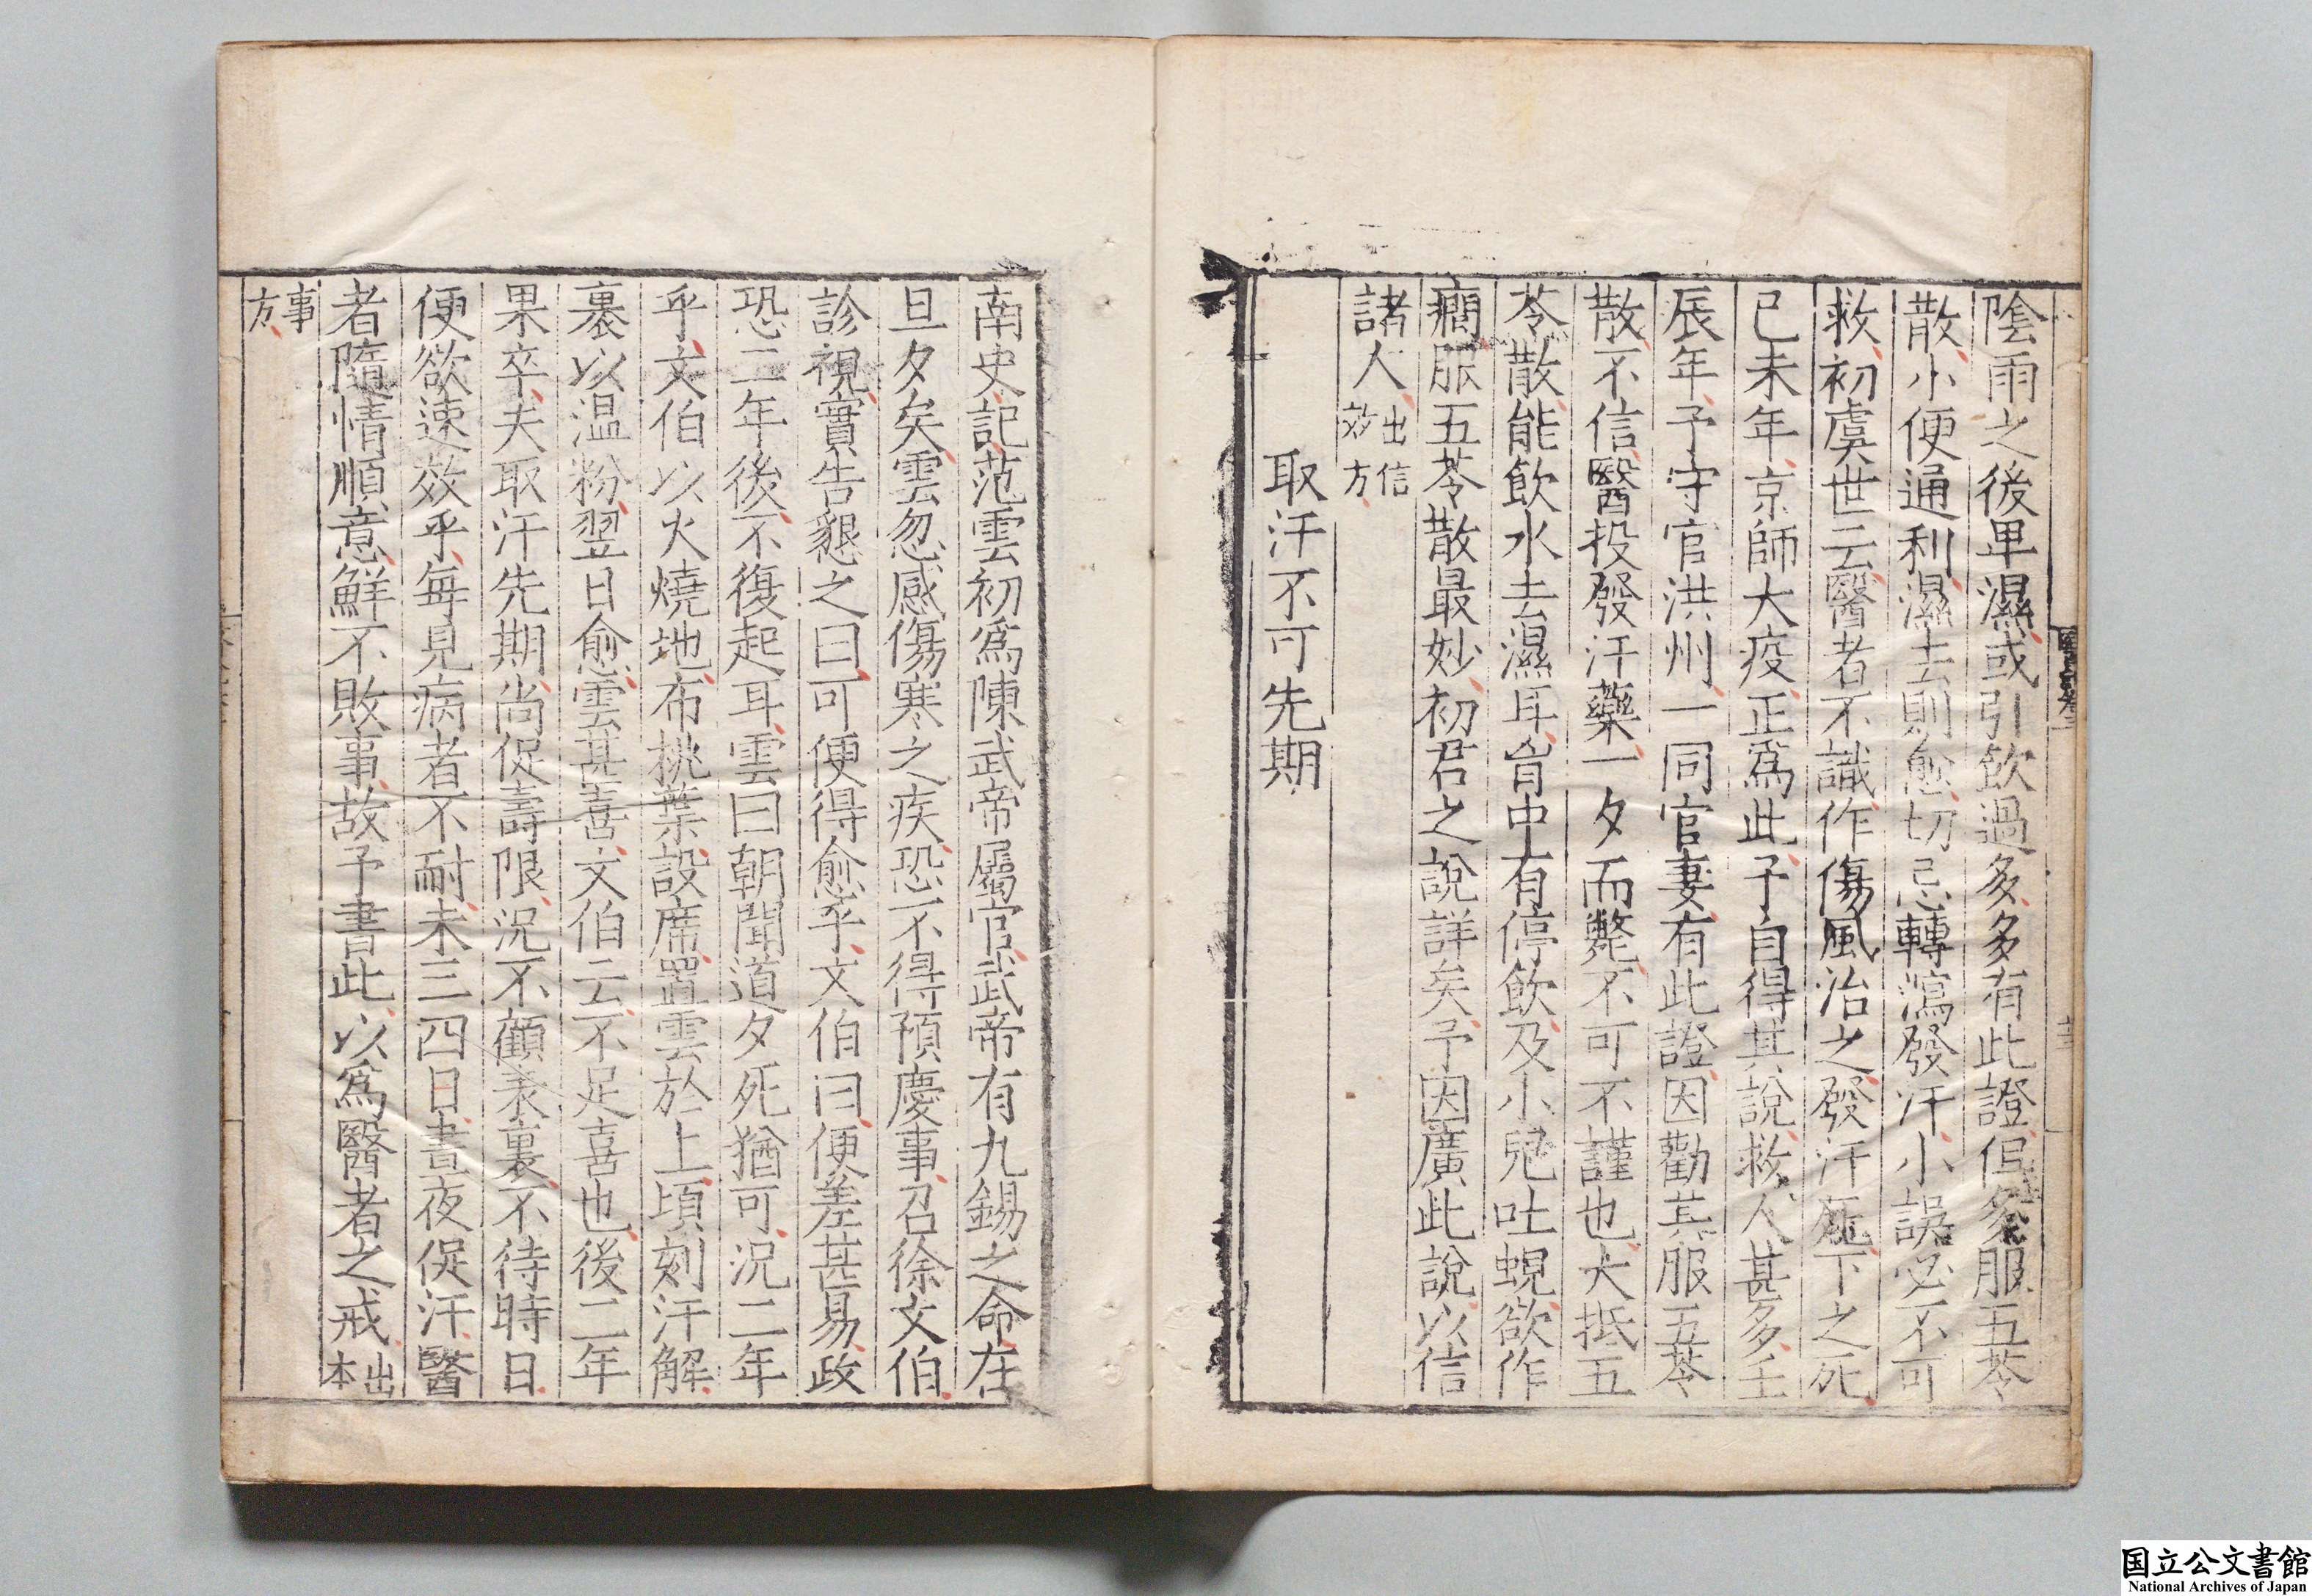 陰雨之後卑濕或引飲過多多有此證但多服五苓
散小便通利濕去則愈切忌轉瀉發汗小誤必不可
救初虞世云醫者不識作傷風治之發汗死下之死
已未年京師大疫正爲此予自得其說救人甚多壬
辰年予守官洪州一同官妻有此證因勸其服五苓
散不信醫投發汗藥一夕而斃不可不謹也大抵五
苓散能飲水去濕耳胷中有停飲及小兒吐蜆欲作
癇服五苓散最妙初君之說詳矣予因廣此說以信
諸人出信效方
取汗不可先期
南史記范雲初爲陳武帝屬官武帝有九錫之命在
旦夕矣雲忽感傷寒之疾恐不得預慶事召徐文伯
診視實告懇之曰可便得愈乎文伯曰便差甚易政
恐二年後不復起耳雲曰朝聞道夕死猶可況二年
乎文伯以火燒地布桃葉設席置雲於上頃刻汗解
裹以温粉翌日愈雲甚喜文伯云不足喜也後二年
果卒夫取汗先期尚促壽限況不顧表裏不待時日
便欲速效乎每見病者不耐未三四日晝夜促汗醫
者隨情順意鮮不敗事故予書此以爲醫者之戒出本
事方
国立公文書館
National Archives of Japan